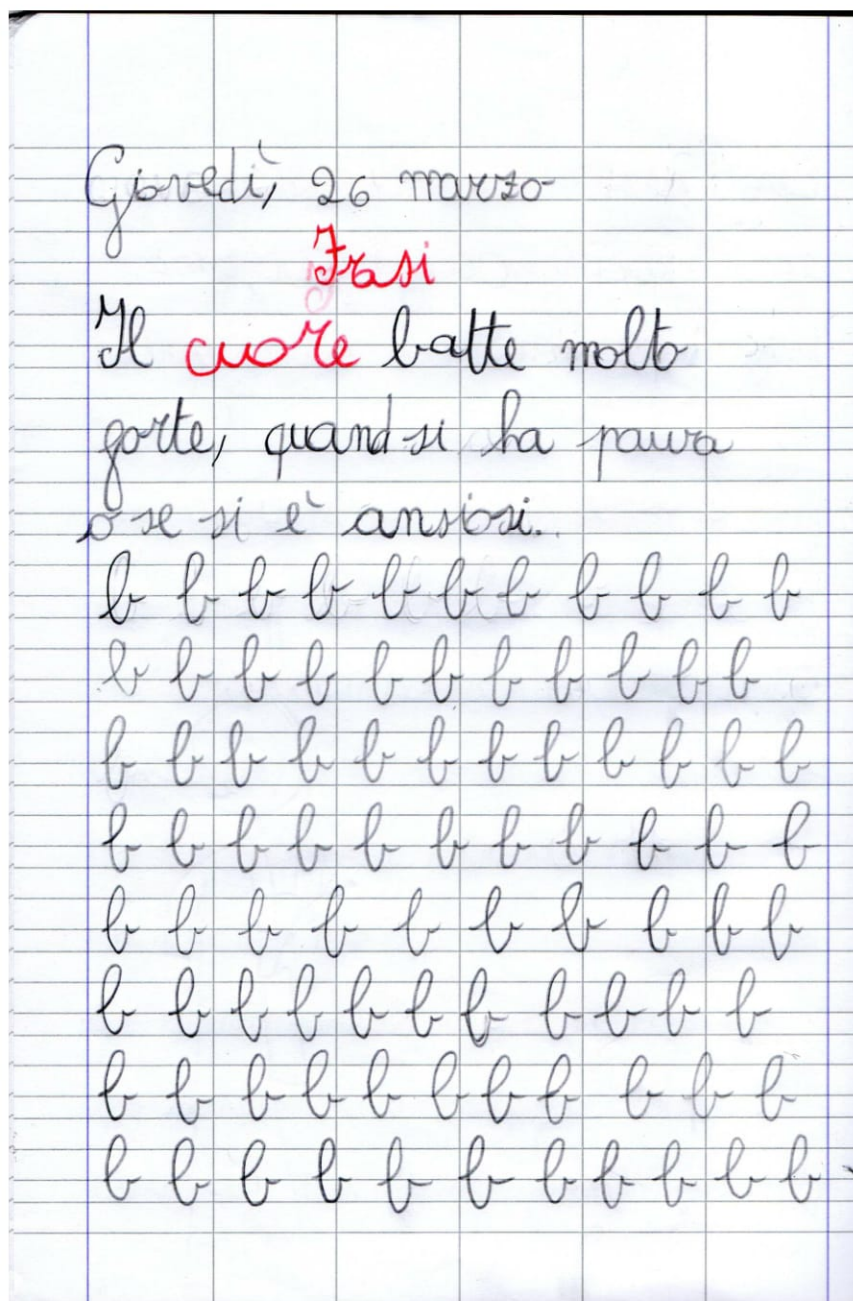 Giovedì, 26 marzo
Frasi
Il cuore batte molto
forte, quand si ha paura
o se si è ansiosi.
b b b b b b b b b b b
b b b b b b b b b b b
b b b b b b b b b b b b
b b b b b b b b b b b
b b b b b b b b b b
b b b b b b b b b b b
b b b b b b b b b b b
b b b b b b b b b b b